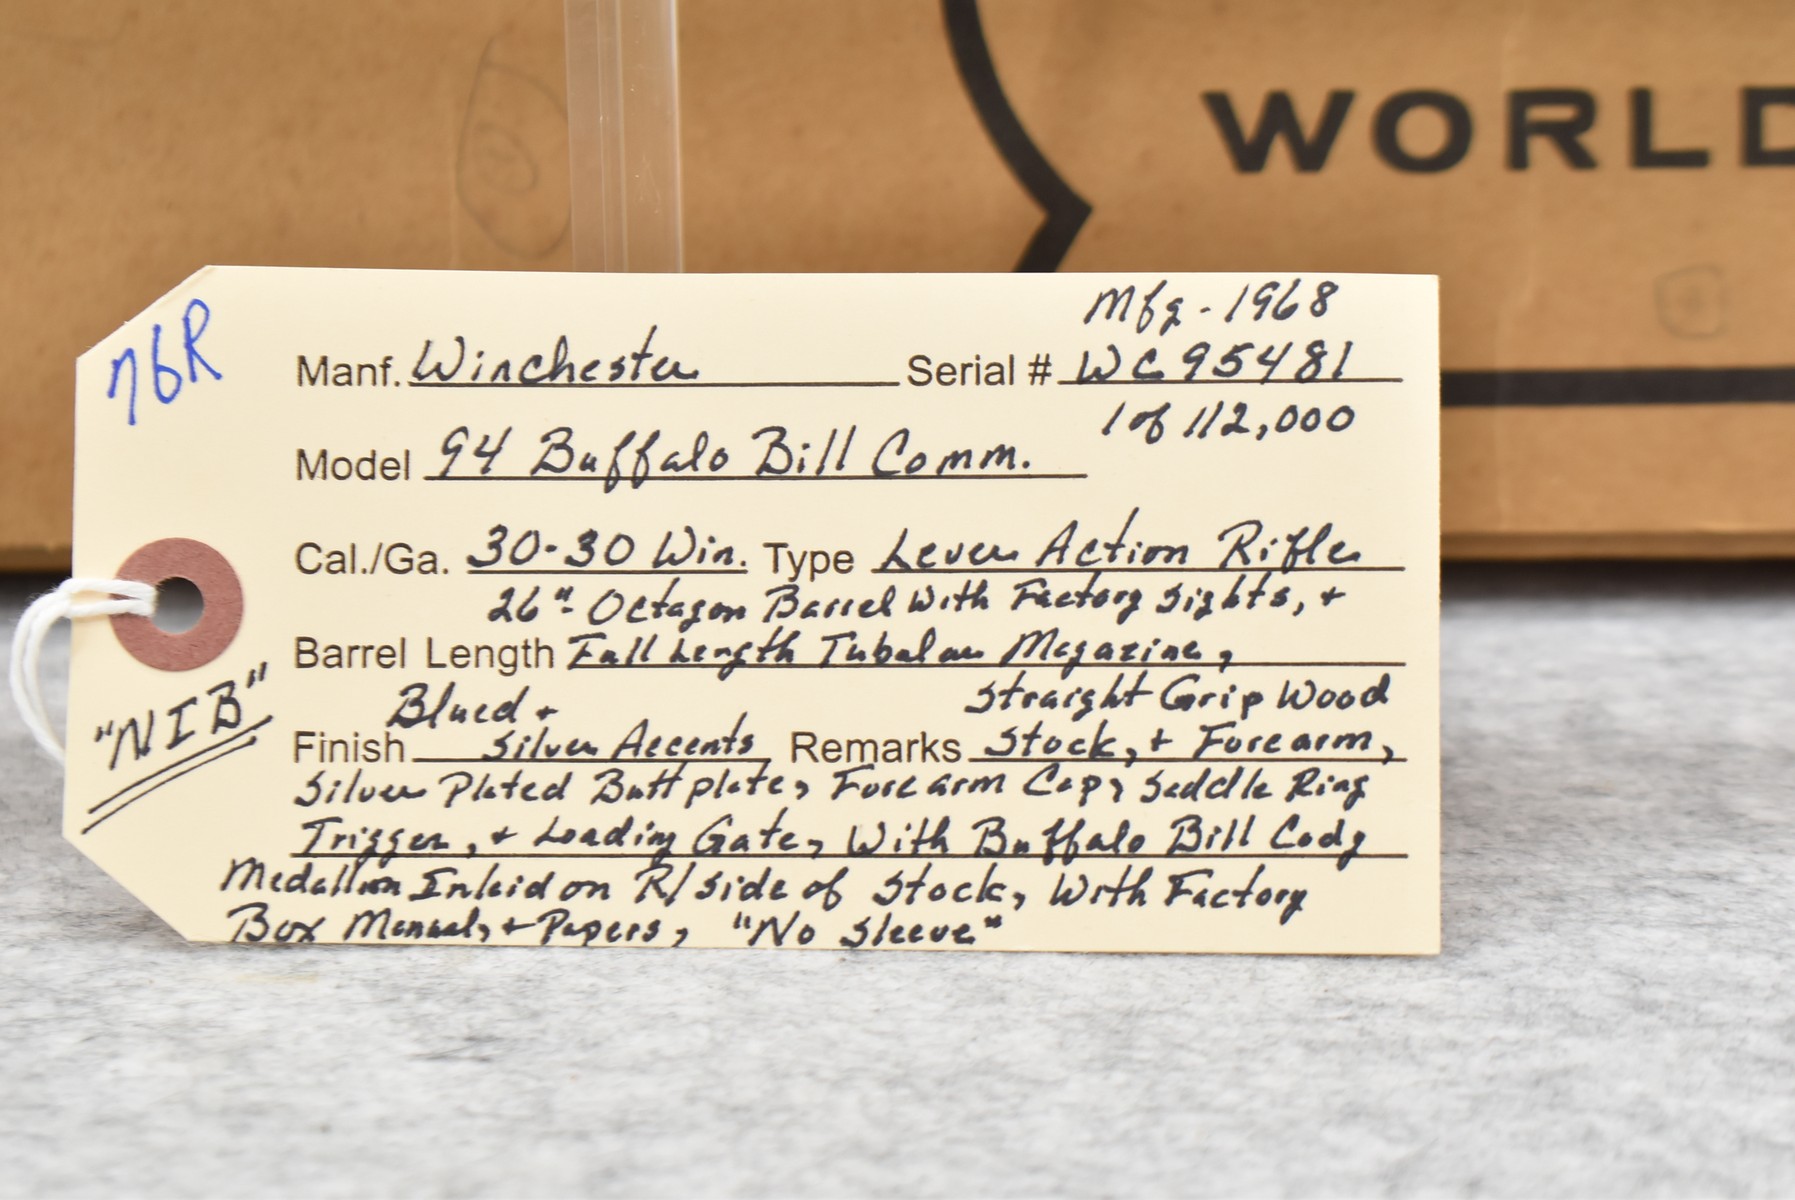 WORLD
76R
Mfg - 1968
Manf. Winchester Serial # WC95481
1 of 112,000
Model 94 Buffalo Bill Comm.
Cal./Ga. 30-30 Win. Type Lever Action Rifle
26"- Octagon Barrel With Factory Sights, +
Barrel Length Full Length Tubular Magazine,
Blued + Straight Grip Wood
Finish Silver Accents Remarks Stock, + Forearm,
Silver Plated Buttplate, Forearm Cap, Saddle Ring
Trigger, + Loading Gate, With Buffalo Bill Cody
Medallion Inlaid on R/side of Stock, With Factory
Box Manual, + Papers, "No Sleeve"
"NIB"